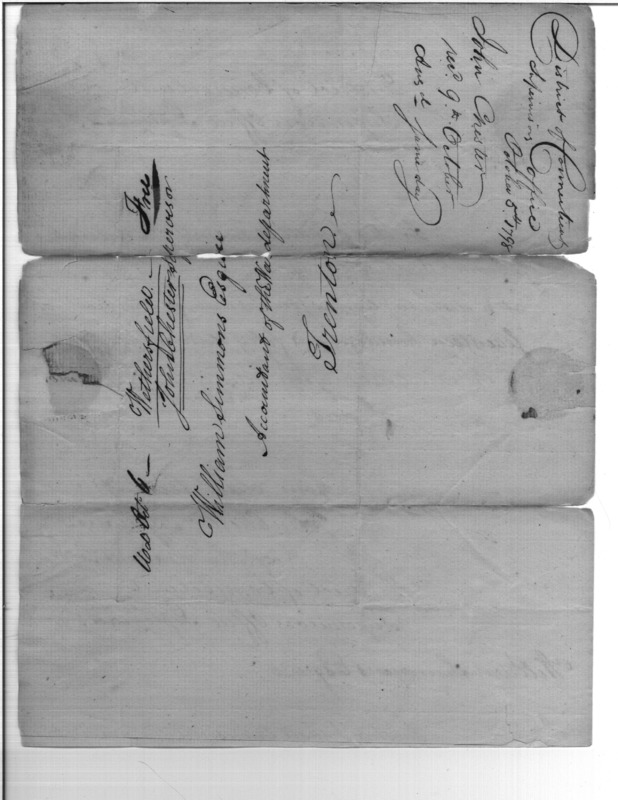 District of Connecticut
Supervisors Office
October 5th 1798
John Chester
recd. 9th October
Ansd same day
Wethersfield. Free
John Chester Supervisor
William Simmons Esquire
Accountant of the War department
Trenton